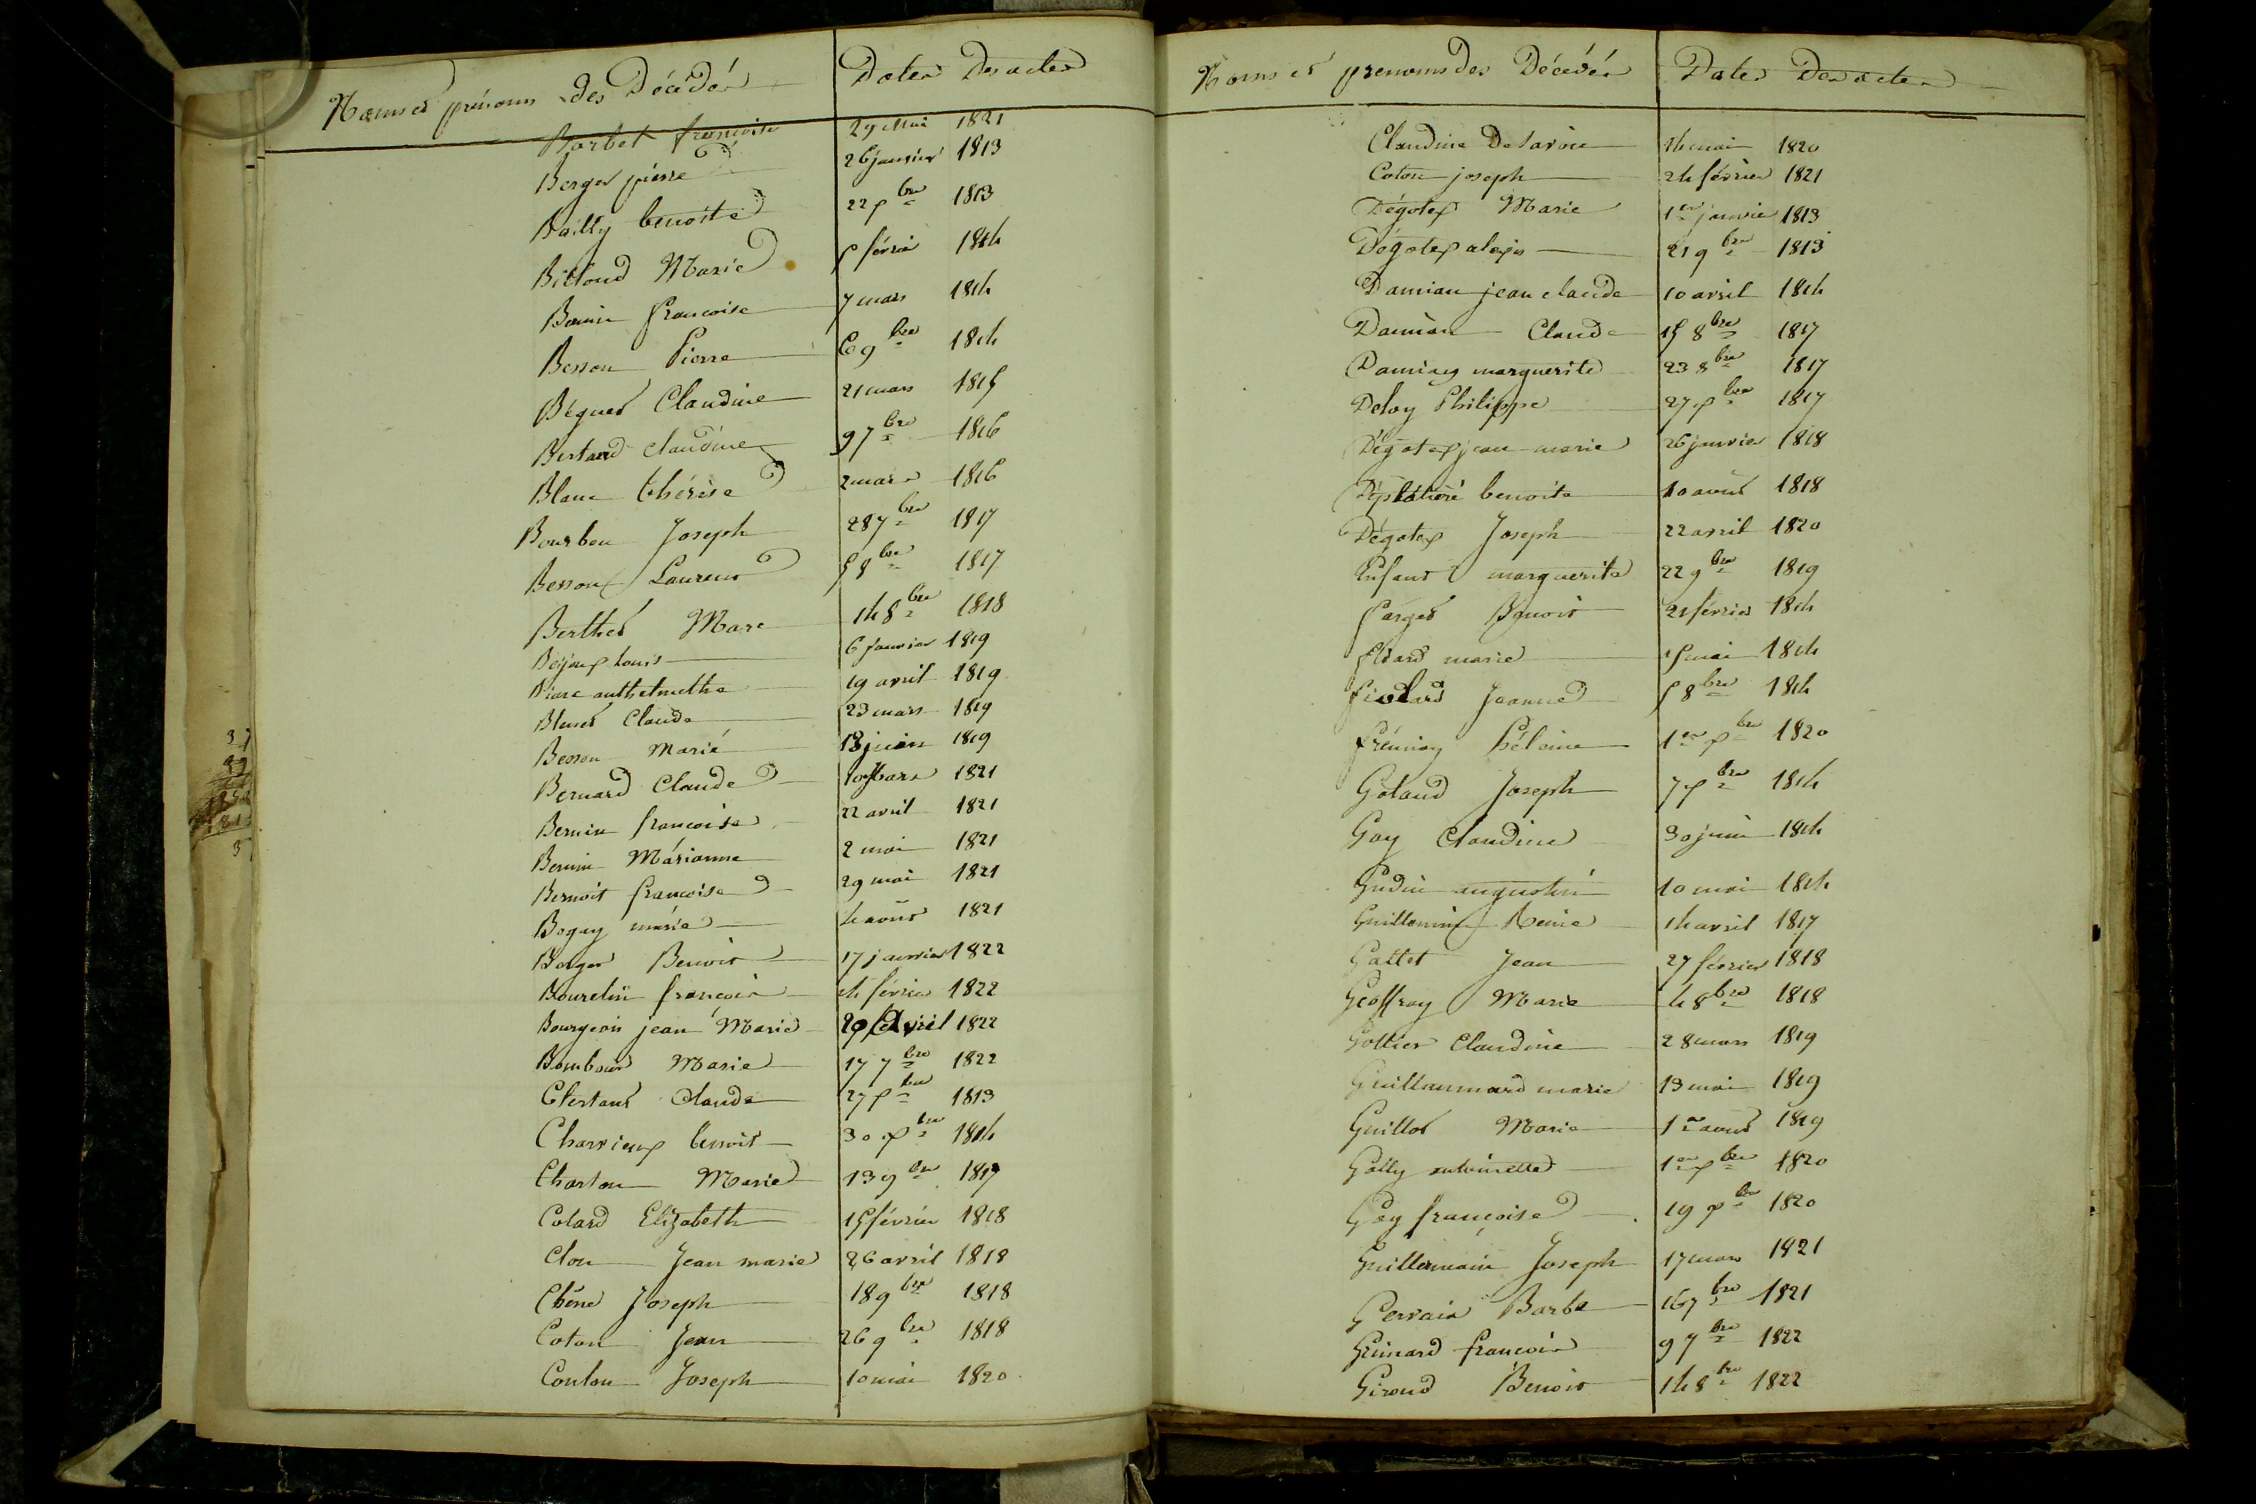 Noms et prénoms des Décédés Dates Des actes
Barbet francoise 29 Mai 1821
Berger pierre 26 janvier 1813
Bailly benoite 22 xbre 1813
Billoud Marie 5 févrie 1814
Bernin francoise 7 mars 1814
Besson Pierre 6 9bre 1814
Béguet Claudine 21 mars 1815
Bertard claudine 9 7bre 1816
Blanc thérèse 2 mars 1816
Bourbon Joseph 28 7bre 1817
Besson Laurent 5 8bre 1817
Berthet Marc 14 8bre 1818
Bejoux Louis 6 Janvier 1819
Pierre 19 avril 1819
Blanet Claude 23 mars 1819
Besson Marie 13 juin 1819
Bernard Claude 10 Mars 1821
Bernin francoise 22 avril 1821
Bernin Márianne 2 mai 1821
Bernoit francoise 29 mai 1821
Boguy marie 4 aout 1821
Berger Benoit 17 janvier 1822
Bourelin francois 14 février 1822
Bourgeois jean Marie 29 Avril 1822
Bombour Marie 17 7bre 1822
Clertant Claude 27 xbre 1813
Charvieux benoit 30 xbre 1814
Charlon Marie 13 9bre 1817
Colard Elizabeth 15 février 1818
Clou Jean marie 26 avril 1818
Chêne Joseph 18 9bre 1818
Coton Jean 26 9bre 1818
Coulon Joseph 10 mai 1820
Noms et prenoms des Décédés Dates Des actes
Claudine De Savoie 16 mai 1820
Coton joseph 24 février 1821
Dégotex Marie 1er janvier 1813
Dégotex alexis 21 9bre 1813
Damian jean claude 10 avril 1814
Damian Claude 15 8bre 1817
Damian marguerite 23 8bre 1817
Deloy Philippe 27 xbre 1817
Dégotex jean marie 26 janvier 1818
benoite 10 aout 1818
Dégotex Joseph 22 avril 1820
Enfant marguerite 22 9bre 1819
farget Benoit 21 février 1814
marie 5 mai 1814
fiolard Jeanne 5 8bre 1814
frémion 1er xbre 1820
Goland Joseph 7 xbre 1814
Gay Claudine 30 juin 1814
Gudin augustin 10 mai 1814
Guillemin Reine 14 avril 1817
Gallet Jean 27 février 1818
Geoffray Marie 4 8bre 1818
Gottier Claudine 28 mars 1819
Guillaumard marie 13 mai 1819
Guillot Marie 1er aout 1819
Golly antoinette 1er xbre 1820
Gay francoise 19 xbre 1820
Guillermain Joseph 17 mars 1821
Gervais Barbe 16 7bre 1821
Guinard francois 9 7bre 1822
Giroud Benoit 14 8bre 1822